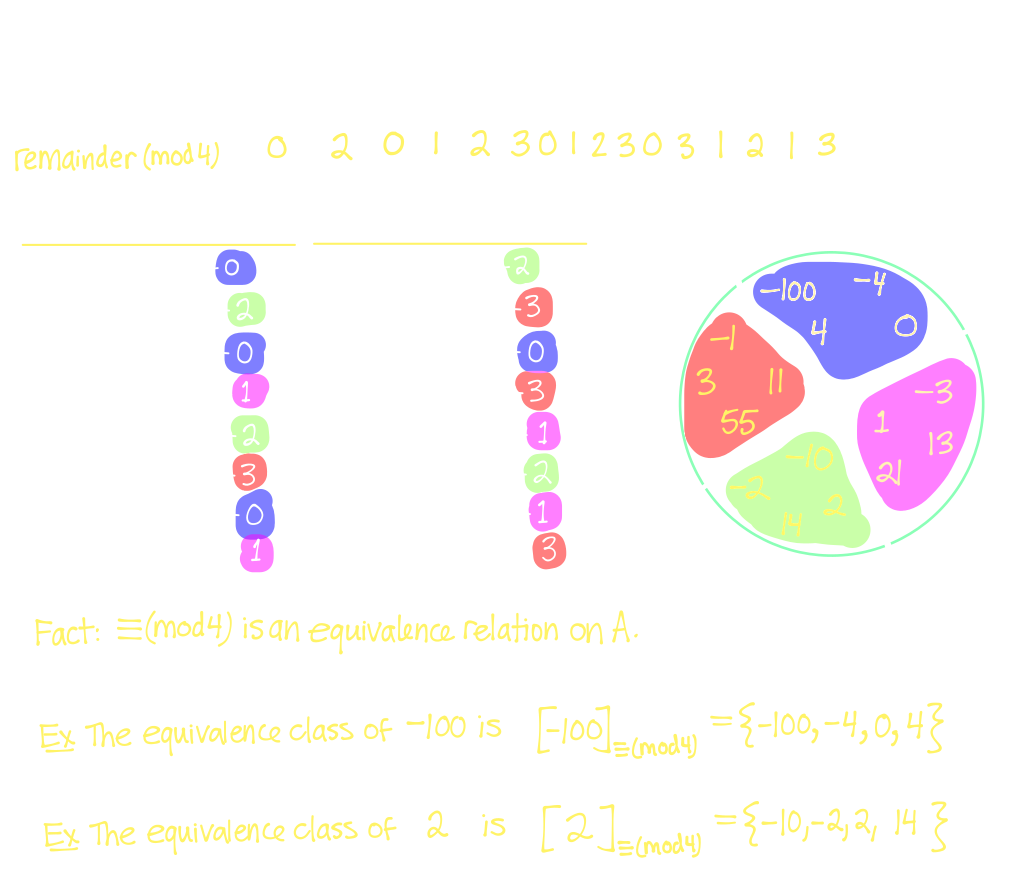 remainder (mod 4) 0 2 0 1 2 3 0 1 2 3 0 3 1 2 1 3
-0 -2
2 -3
-0 -0
1 -3
-2 1
3 2
-0 1
1 3
-100 -4
4 0
-1
3 11
55
-3
1 13
21
-10
-2 2
14
Fact: ≡(mod 4) is an equivalence relation on A.
Ex The equivalence class of -100 is [-100]≡(mod 4) = {-100, -4, 0, 4}
Ex The equivalence class of 2 is [2]≡(mod 4) = {-10, -2, 2, 14}